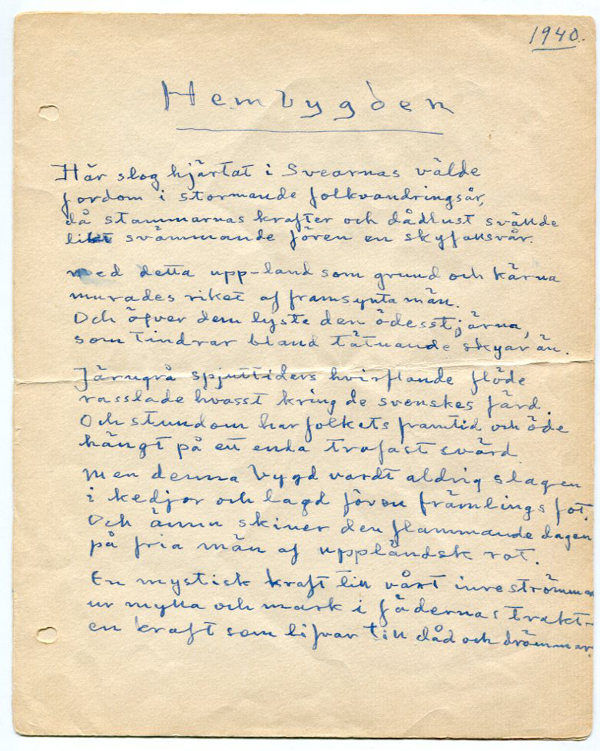 1940.
Hembygden
Här slog hjärtat i Svearnas välde
fordom i stormande folkvandringsår,
då stammarnas krafter och dådlust svällde
likt svämmande fören en skyfallsvår.
Med detta upp-land som grund och kärna
murades riket af framsynta män.
Och öfver dem lyste den ödesstjärna,
som tindrar bland tätnande skyar än.
Järngrå spjuttiders hvirflande flöde
rasslade hvasst kring de svenskes färd.
Och stundom har folkets framtid och öde
hängt på ett enda trofast svärd.
Men denna bygd vardt aldrig slagen
i kedjor och lagd för främlings fot.
Och ännu skiner den flammande dagen
på fria män af uppländsk rot.
En mystisk kraft till vårt inre strömmar
ur mylla och mark i fädernas trakt–
en kraft som lifvar till dåd och drömmar.